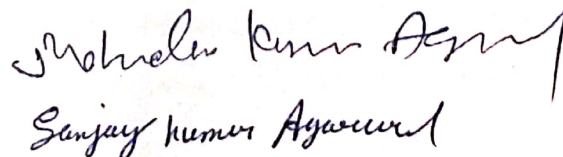 Mahendra Kumar Agarwal
Sanjay Kumar Agarwal